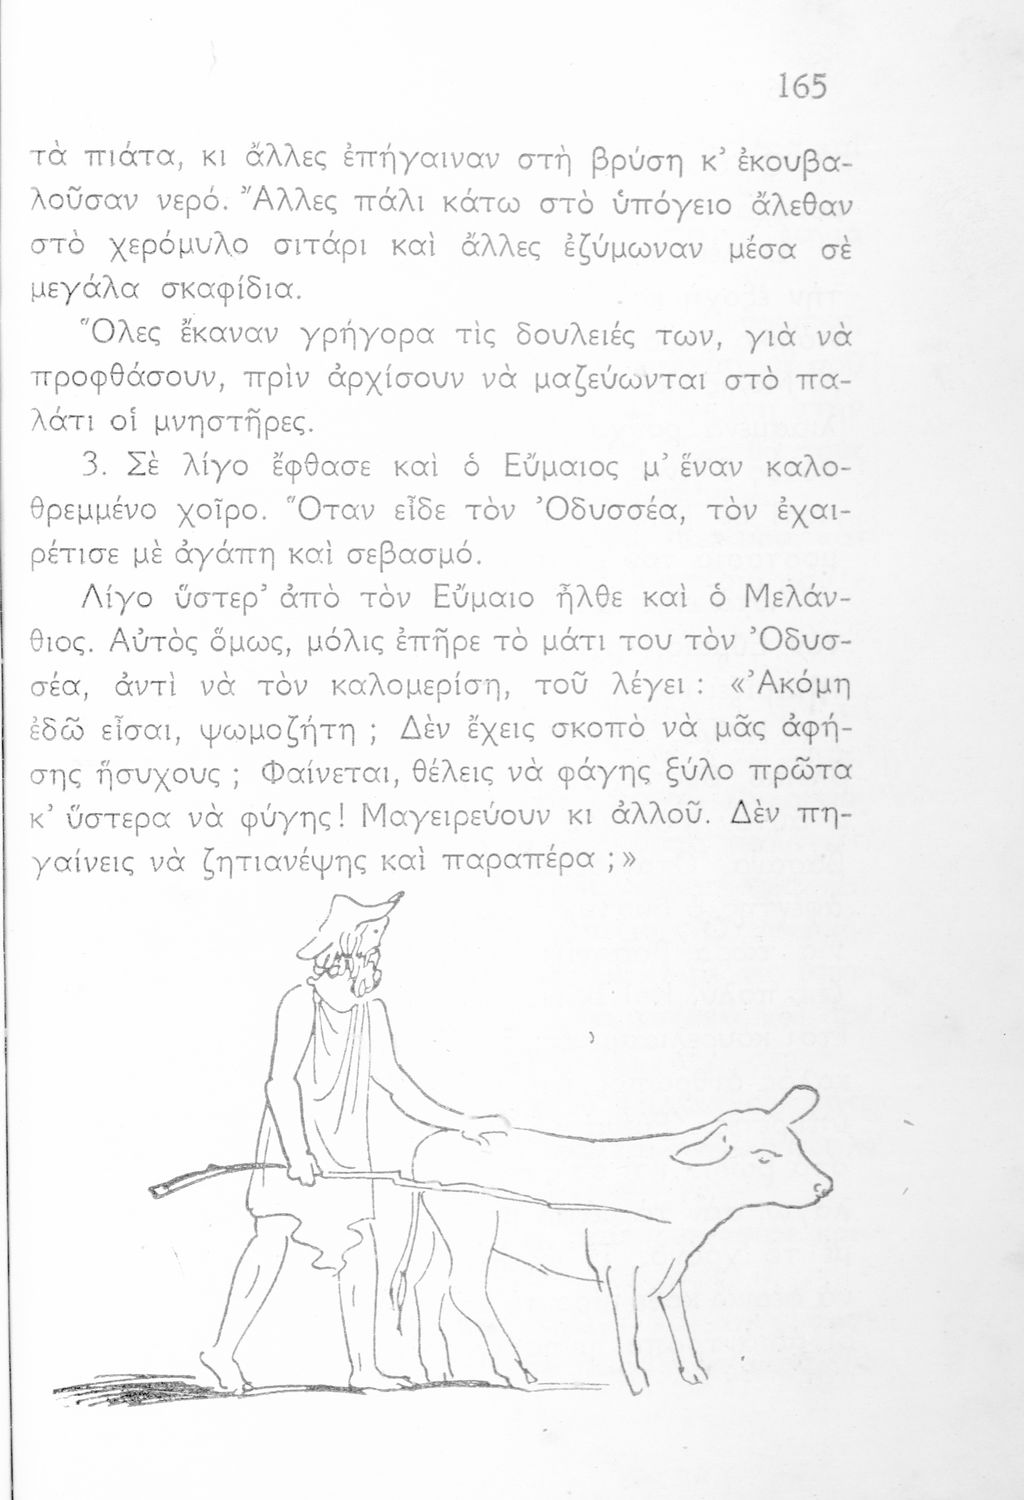 165
τὰ πιάτα, κι ἄλλες ἐπήγαιναν στὴ βρύση κ’ ἐκουβα-
λοῦσαν νερό. Ἄλλες πάλι κάτω στὸ ὑπόγειο ἄλεθαν
στὸ χερόμυλο σιτάρι καὶ ἄλλες ἐζύμωναν μέσα σὲ
μεγάλα σκαφίδια.
Ὅλες ἔκαναν γρήγορα τὶς δουλειές των, γιὰ νὰ
προφθάσουν, πρὶν ἀρχίσουν νὰ μαζεύωνται στὸ πα-
λάτι οἱ μνηστῆρες.
3. Σὲ λίγο ἔφθασε καὶ ὁ Εὔμαιος μ’ ἕναν καλο-
θρεμμένο χοῖρο. Ὅταν εἶδε τὸν Ὀδυσσέα, τὸν ἐχαι-
ρέτισε μὲ ἀγάπη καὶ σεβασμό.
Λίγο ὕστερ’ ἀπὸ τὸν Εὔμαιο ἦλθε καὶ ὁ Μελάν-
θιος. Αὐτὸς ὅμως, μόλις ἐπῆρε τὸ μάτι του τὸν Ὀδυσ-
σέα, ἀντὶ νὰ τὸν καλομερίση, τοῦ λέγει : «Ἀκόμη
ἐδῶ εἶσαι, ψωμοζήτη ; Δὲν ἔχεις σκοπὸ νὰ μᾶς ἀφή-
σης ἥσυχους ; Φαίνεται, θέλεις νὰ φάγης ξύλο πρῶτα
κ’ ὕστερα νὰ φύγης! Μαγειρεύουν κι ἀλλοῦ. Δὲν πη-
γαίνεις νὰ ζητιανέψης καὶ παραπέρα ;»